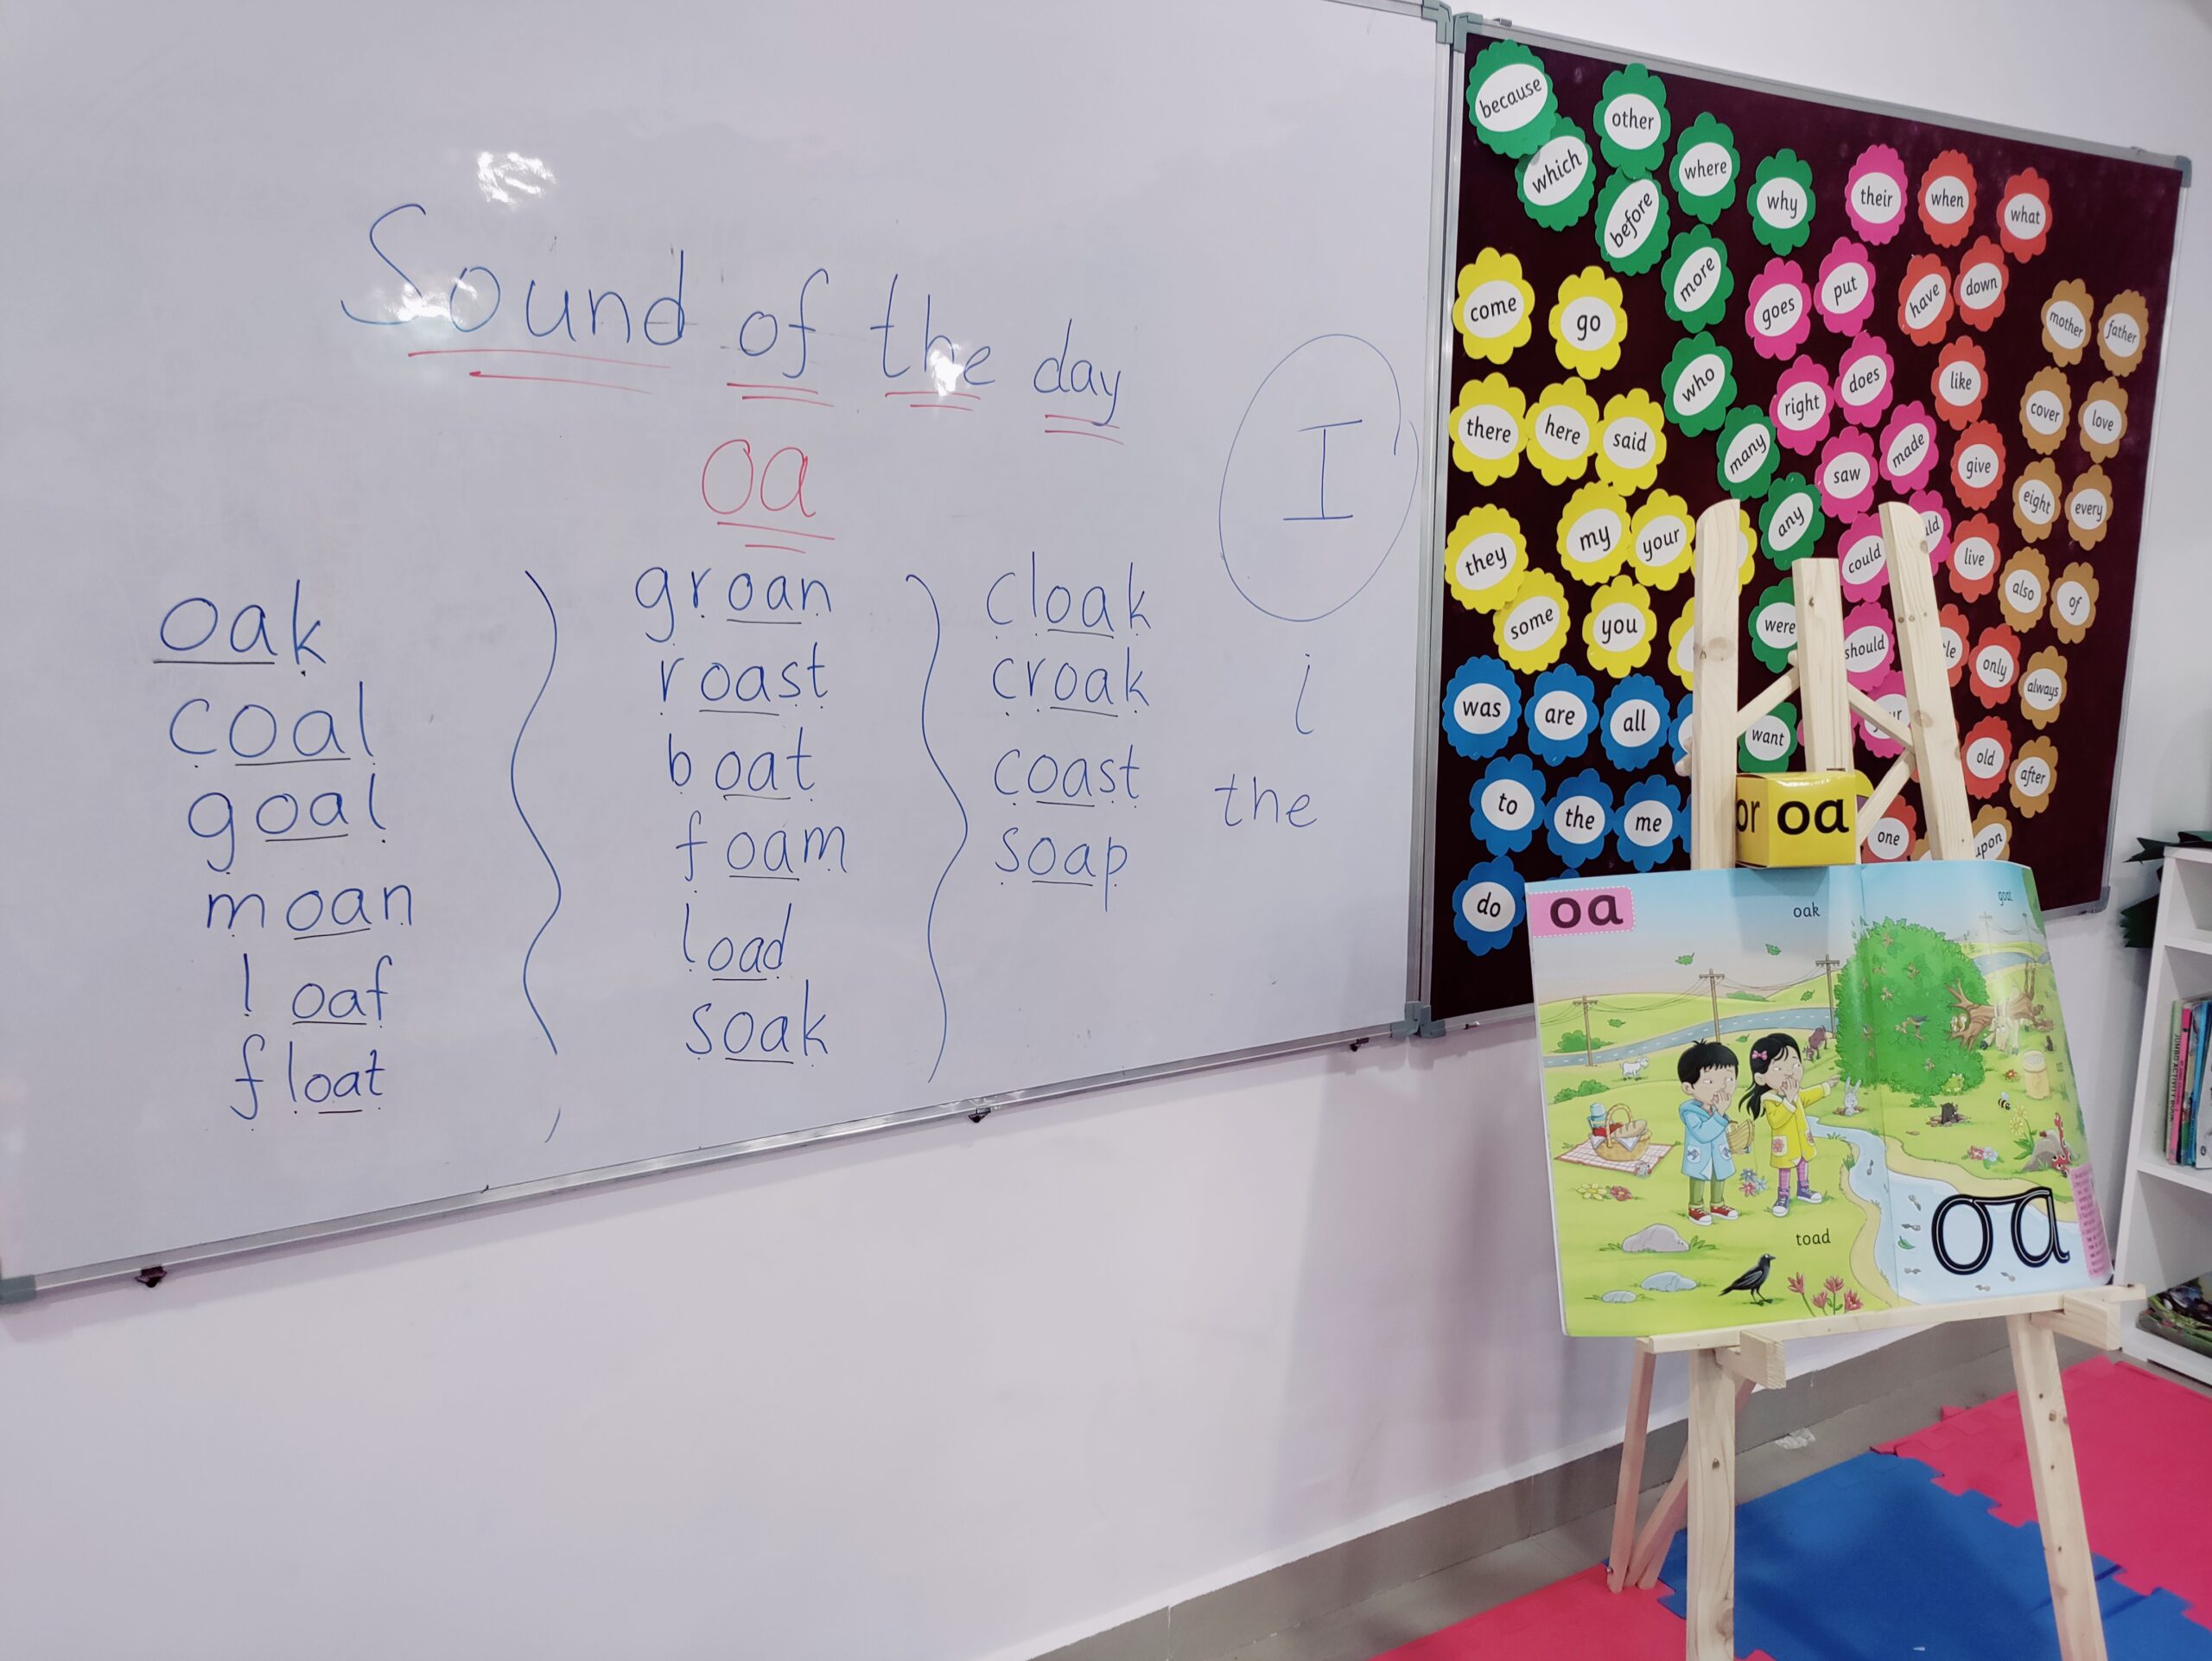 Sound of the day
oa
oak
coal
goal
moan
loaf
float
groan
roast
boat
foam
load
soak
cloak
croak
coast
soap
I
i
the
because
other
which
where
before
why
their
when
what
more
come
go
goes
put
have
down
mother
father
who
there
here
said
right
does
like
cover
love
many
saw
made
give
they
my
your
any
could
live
eight
every
some
you
were
should
only
also
of
was
are
all
want
always
to
the
me
one
old
after
upon
do
or oa
oa
oak
goat
toad
oa